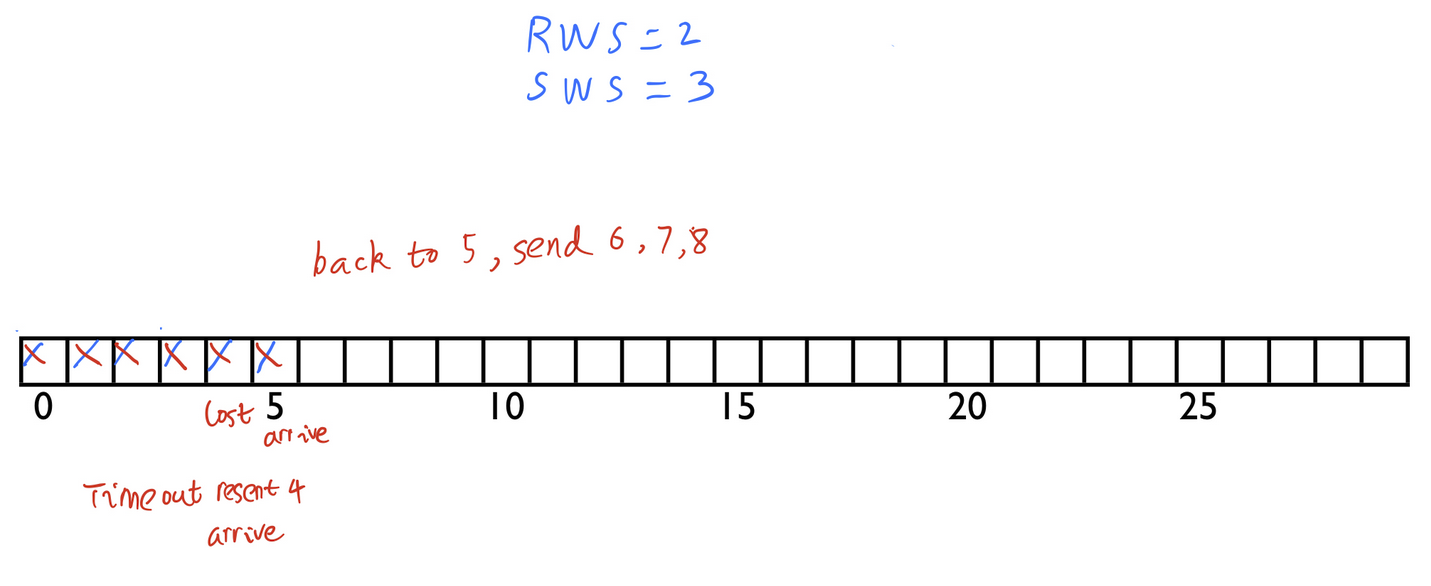 RWS=2
SWS=3
back to 5, send 6,7,8
0 5 10 15 20 25
Lost
arrive
Timeout resent 4
arrive